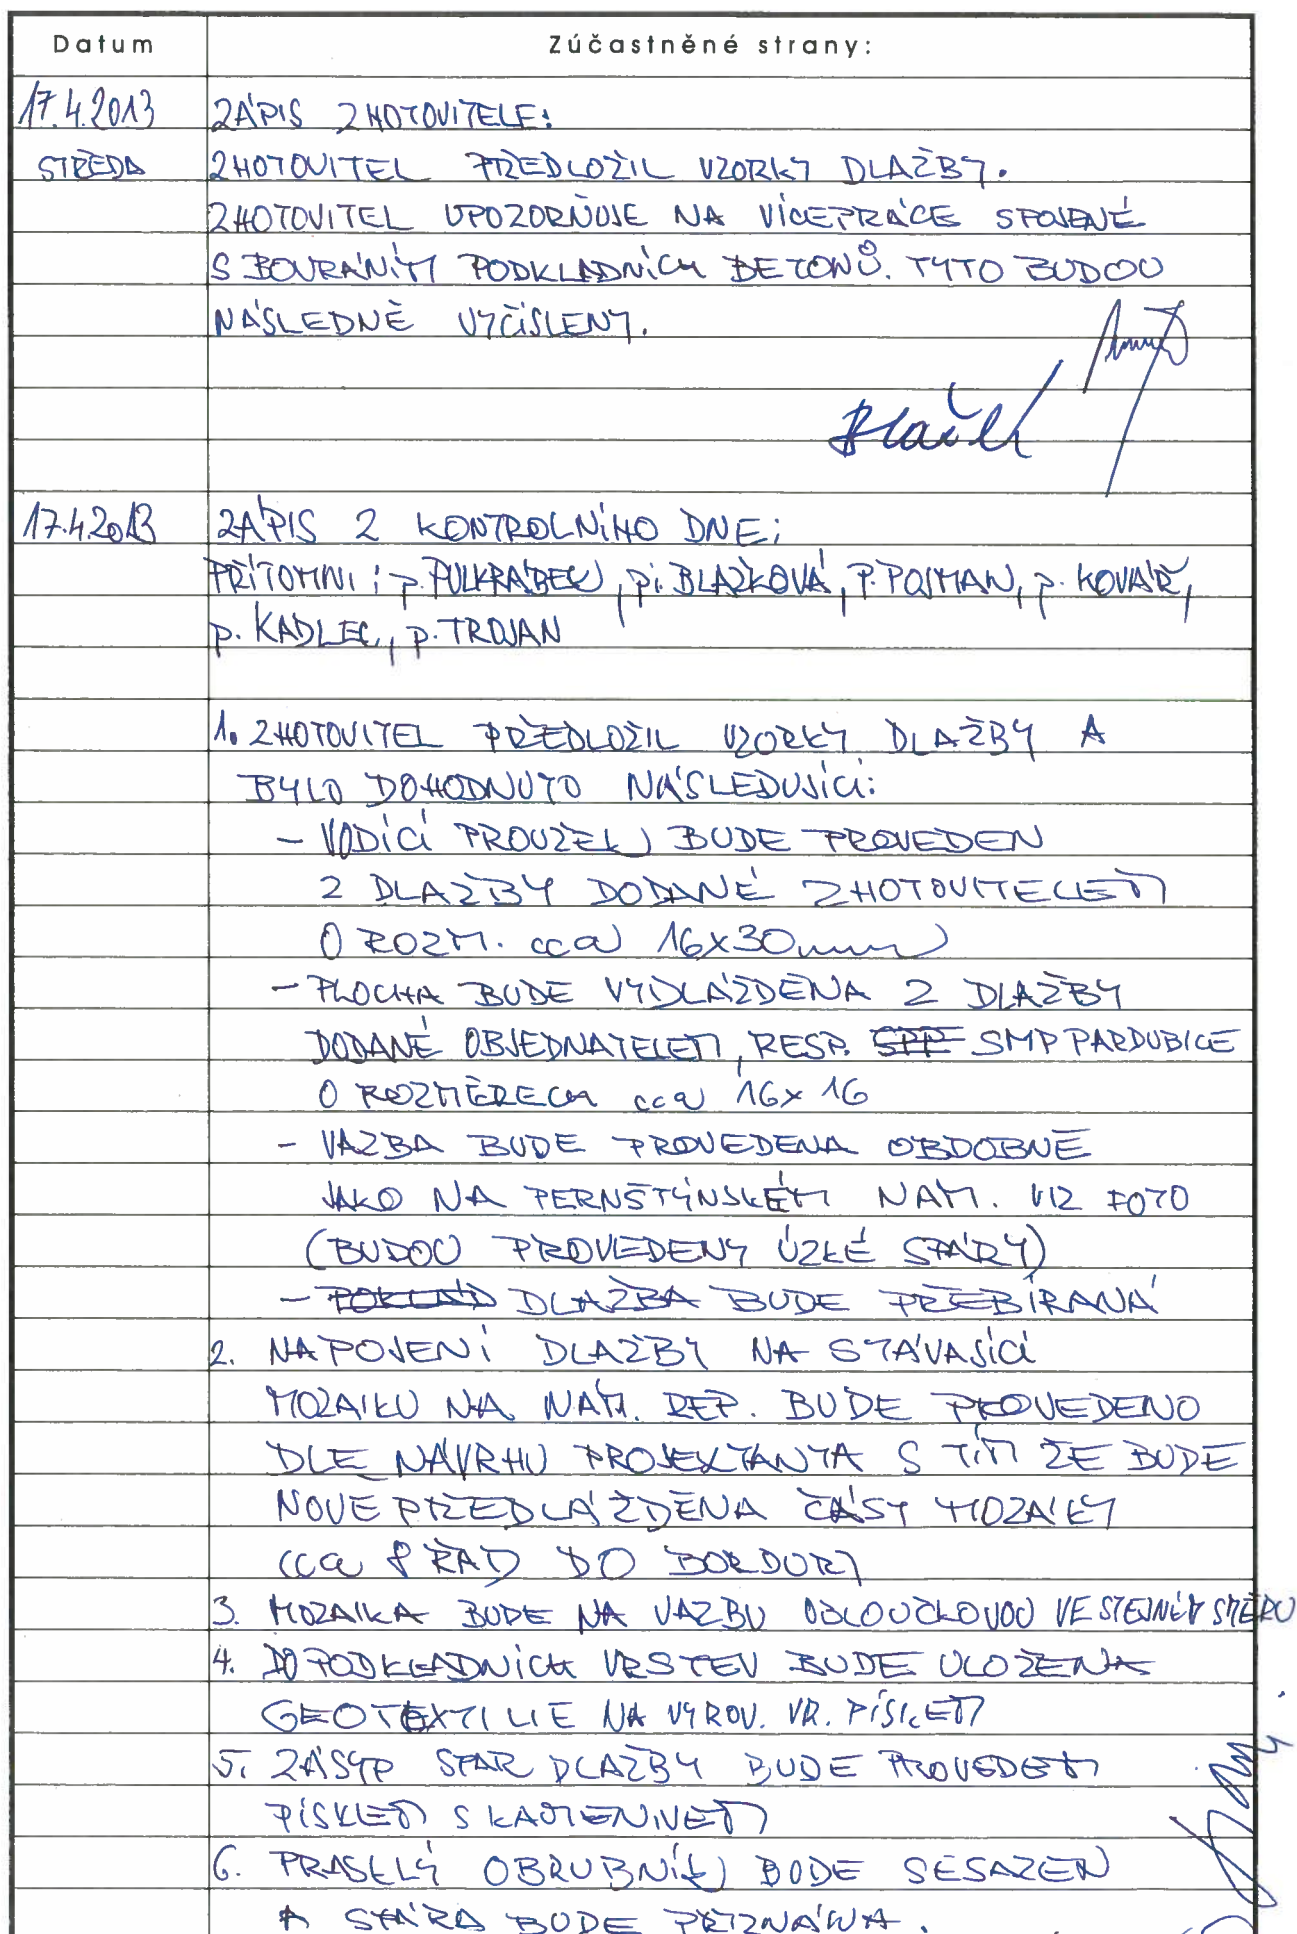 Datum Zúčastněné strany:
17.4.2013 ZÁPIS ZHOTOVITELE:
STŘEDA ZHOTOVITEL PŘEDLOŽIL VZORKY DLAŽBY.
ZHOTOVITEL UPOZORŇUJE NA VÍCEPRÁCE SPOJENÉ
S BOURÁNÍM PODKLADNÍCH BETONŮ. TYTO BUDOU
NÁSLEDNĚ VYČÍSLENY.
17.4.2013 ZÁPIS Z KONTROLNÍHO DNE:
PŘÍTOMNI: p. PULKRÁBEK, pí. BLAŽKOVÁ, P. POJMAN, p. KOVÁŘ,
p. KADLEC, p. TROJAN
1. ZHOTOVITEL PŘEDLOŽIL VZORKY DLAŽBY A
BYLO DOHODNUTO NÁSLEDUJÍCÍ:
- VODÍCÍ PROUŽEK BUDE PROVEDEN
Z DLAŽBY DODANÉ ZHOTOVITELEM
O ROZM. cca 16x30mm
- PLOCHA BUDE VYDLÁŽDĚNA Z DLAŽBY
DODANÉ OBJEDNATELEM, RESP. SPP SMP PARDUBICE
O ROZMĚRECH cca 16x16
- VAZBA BUDE PROVEDENA OBDOBNĚ
JAKO NA PERNŠTÝNSKÉM NÁM. VIZ FOTO
(BUDOU PROVEDENY ÚZKÉ SPÁRY)
- POKLAD DLAŽBA BUDE PŘEBÍRANÁ
2. NAPOJENÍ DLAŽBY NA STÁVAJÍCÍ
MOZAIKU NA NÁM. REP. BUDE PROVEDENO
DLE NÁVRHU PROJEKTANTA S TÍM ŽE BUDE
NOVĚ PŘEDLÁŽDĚNA ČÁST MOZAIKY
cca 8 ŘAD DO BORDURY
3. MOZAIKA BUDE NA VAZBU OBLOUČKOVOU VE STEJNÉM SMĚRU
4. DO PODKLADNÍCH VRSTEV BUDE ULOŽENA
GEOTEXTILIE NA VYROV. VR. PÍSKEM
5. ZÁSYP SPAR DLAŽBY BUDE PROVEDEN
PÍSKEM S KAMENIVEM
6. PRASKLÝ OBRUBNÍK BUDE SESAZEN
A SPÁRA BUDE PŘIZNÁNA.